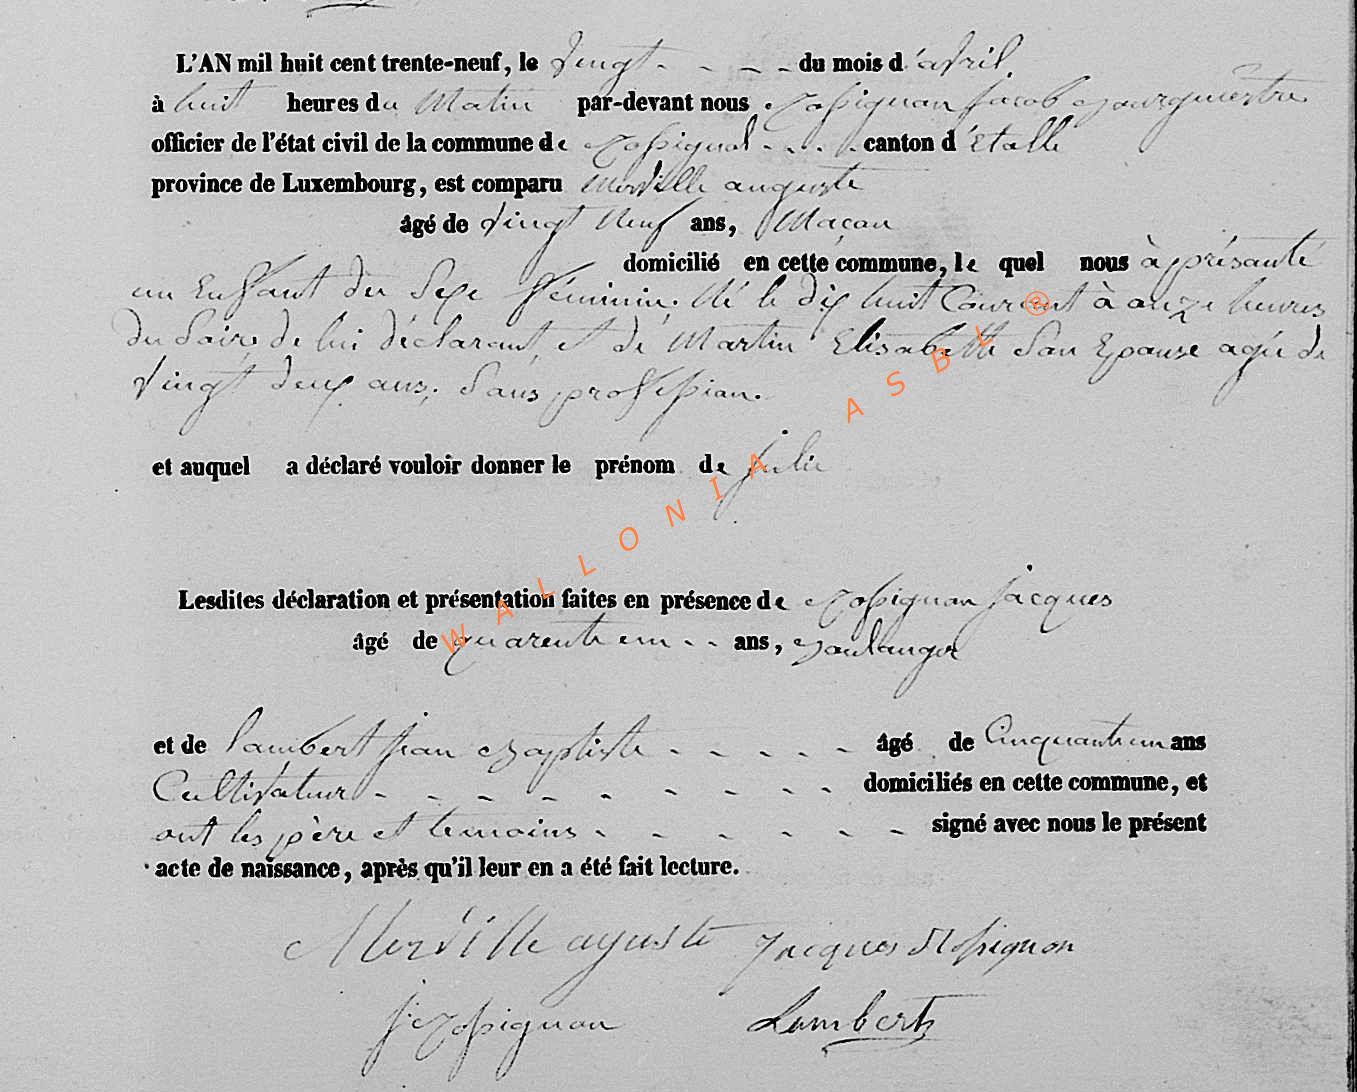 L'AN mil huit cent trente-neuf, le vingt - - - - du mois d'avril
à huit heures du Matin par-devant nous Rossignon jacob Bourguestre
officier de l'état civil de la commune de Rossignol - - - - canton d'Etalle
province de Luxembourg, est comparu Merville auguste
âgé de vingt Neuf ans, Maçon
domicilié en cette commune, le quel nous à présanté
un Enfant du Sexe féminin. Né le dix huit Courent à onze heures
du Soire de lui déclarant et de Martin Elisabette San Epouse agée de
vingt deux ans. Sans profession.
et auquel a déclaré vouloir donner le prénom de julie
Lesdites déclaration et présentation faites en présence de Rossignon jacques
âgé de quarente un - - ans, Boulanger
et de lambert jean Baptiste - - - - - âgé de Cinquante un ans
Cultivateur - - - - - - - - - domiciliés en cette commune, et
ont les père et temoins - - - - - - signé avec nous le présent
acte de naissance, après qu'il leur en a été fait lecture.
Merville aguste Jacques Rossignon
j. Rossignon Lambert
WALLONIA ASBL ®